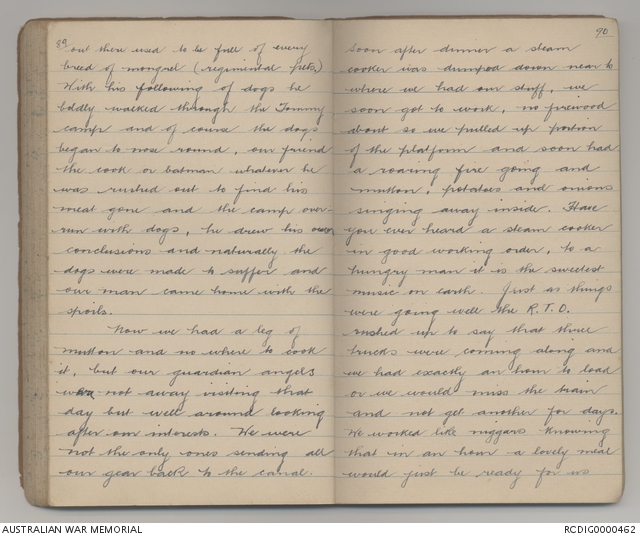 89
out there used to be full of every
breed of mongrel (regimental pets)
With his following of dogs he
boldly walked through the Tommy
camp and of course the dogs
began to nose round, our friend
the cook or batman whatever he
was rushed out to find his
meat gone and the camp over-
run with dogs, he drew his own
conclusions and naturally the
dogs were made to suffer and
our man came home with the
spoils.
Now we had a leg of
mutton and no where to cook
it, but our guardian angels
were not away visiting that
day but well around looking
after our interests. We were
not the only ones sending all
our gear back to the canal.
90
Soon after dinner a steam
cooker was dumped down near to
where we had our stuff, we
soon got to work, no firewood
about so we pulled up portion
of the platform and soon had
a roaring fire going and
mutton, potatoes and onions
singing away inside. Have
you ever heard a steam cooker
in good working order, to a
hungry man it is the sweetest
music on earth. Just as things
were going well the R.T.O.
rushed up to say that three
trucks were coming along and
we had exactly an hour to load
or we would miss the train
and not get another for days.
We worked like niggars knowing
that in an hour a lovely meal
would just be ready for us
AUSTRALIAN WAR MEMORIAL
RCDIG0000462